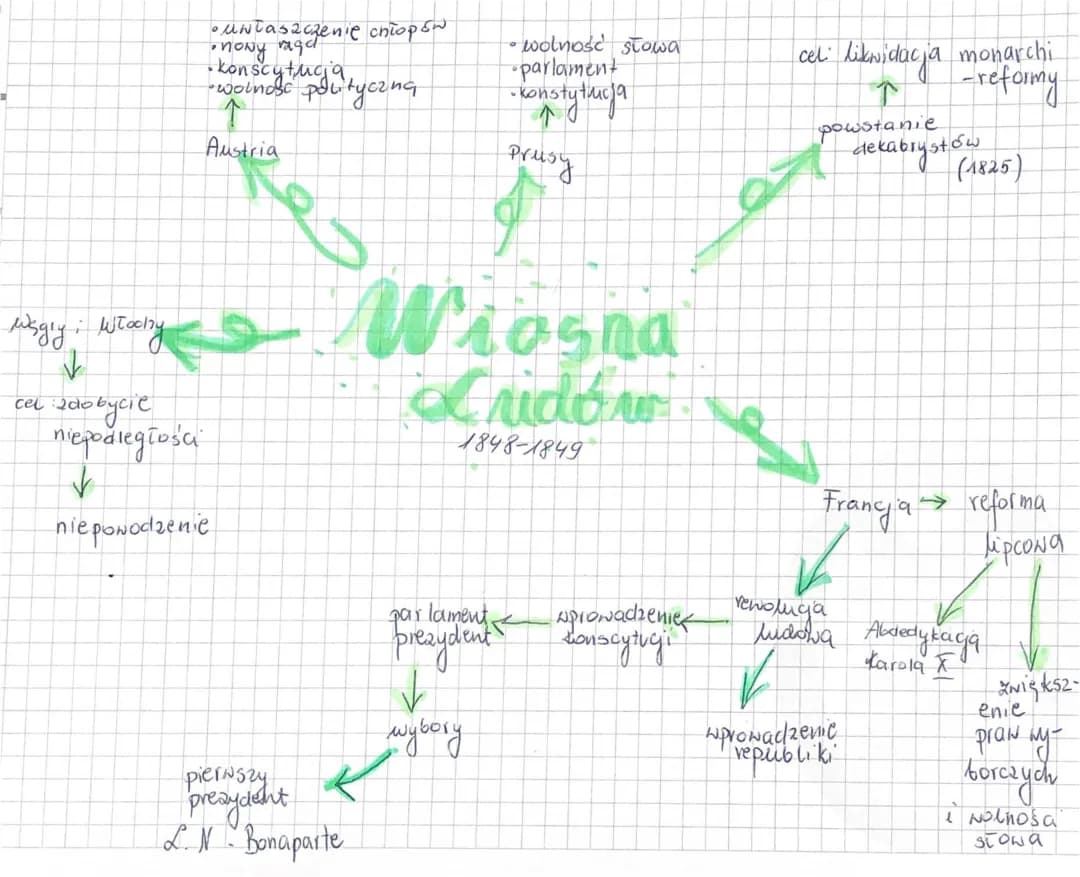 • uwłaszczenie chłopów
• nowy rząd
• konscytucja
• wolność polityczną
Austria
• wolność słowa
• parlament
• konstytucja
Prusy
cel: likwidacja monarchi
- reformy
powstanie
dekabrystów
(1825)
Wiosna
Ludów
1848-1849
Węgry i Włochy
cel: zdobycie
niepodległości
niepowodzenie
Francja → reforma
lipcowa
Abdedykacją
Karola X
zwięksż-
enie
praw wy-
borczych
i wolnosci
słowa
rewolucja
ludowa
wprowadzenie
republiki
wprowadzenie
konscytucji
parlament
prezydent
wybory
pierwszy
prezydent
L. N. Bonaparte